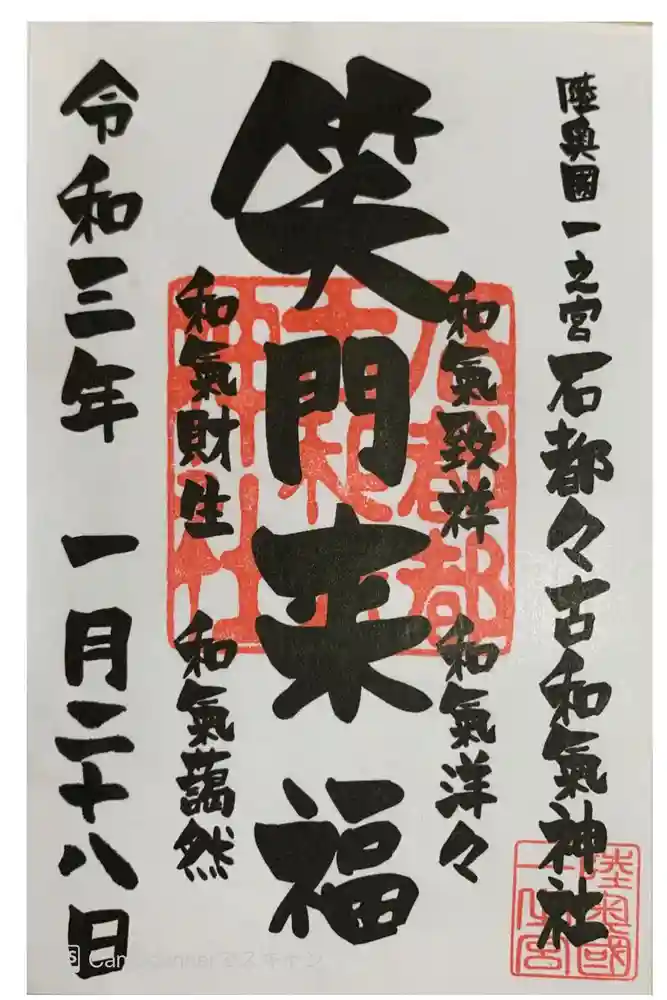 陸奥國一之宮石都々古和氣神社
和氣致祥
和氣洋々
笑門来福
和氣財生
和氣藹然
令和三年 一月二十八日
陸奥國
一之宮
CamScannerでスキャン